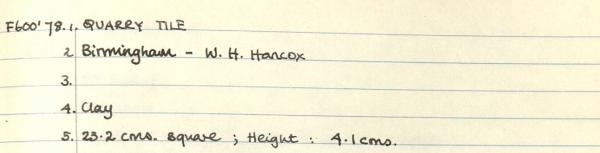 F600'78.1. QUARRY TILE
2 Birmingham - W. H. Hancox
3.
4. Clay
5. 23.2 cms. square ; Height : 4.1 cms.